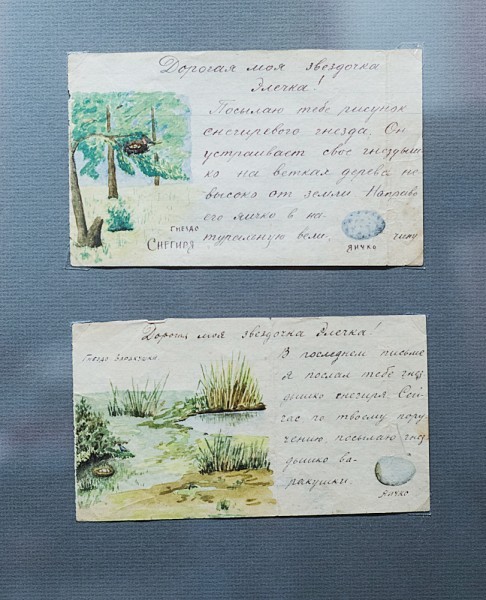 Дорогая моя звездочка
Элечка!
Посылаю тебе рисунок
снегиревого гнезда. Он
устраивает свое гнездыш-
ко на ветках дерева не
высоко от земли. Направо
его яичко в на-
туральную вели чину
ГНЕЗДО
СНЕГИРЯ
ЯИЧКО
Дорогая моя звездочка Элечка!
Гнездо Варакушки
В последнем письме
я послал тебе гнез
дышко снегиря. Сей-
час, по твоему пору-
чению, посылаю гнез
дышко ва-
ракушки.
ЯИЧКО